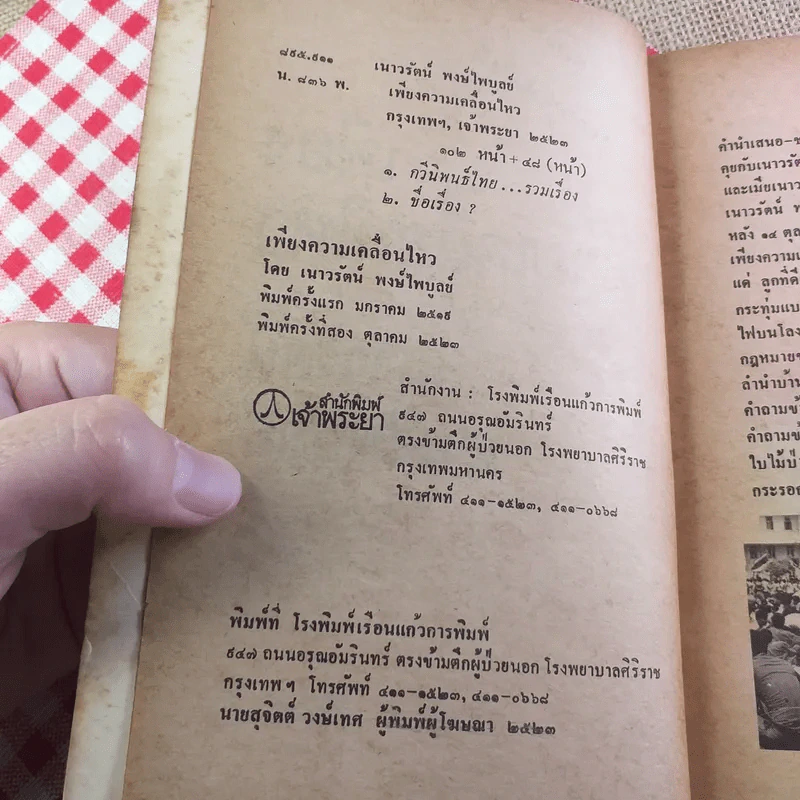 ๘๙๕.๙๑๑ เนาวรัตน์ พงษ์ไพบูลย์
น. ๘๓๖ พ. เพียงความเคลื่อนไหว
กรุงเทพฯ, เจ้าพระยา ๒๕๒๓
๑๐๒ หน้า + ๔๘ (หน้า)
๑. กวีนิพนธ์ไทย...รวมเรื่อง
๒. ชื่อเรื่อง ?
เพียงความเคลื่อนไหว
โดย เนาวรัตน์ พงษ์ไพบูลย์
พิมพ์ครั้งแรก มกราคม ๒๕๑๙
พิมพ์ครั้งที่สอง ตุลาคม ๒๕๒๓
สำนักพิมพ์
เจ้าพระยา
สำนักงาน : โรงพิมพ์เรือนแก้วการพิมพ์
๙๔๗ ถนนอรุณอัมรินทร์
ตรงข้ามตึกผู้ป่วยนอก โรงพยาบาลศิริราช
กรุงเทพมหานคร
โทรศัพท์ ๔๑๑-๑๕๒๓, ๔๑๑-๐๖๖๘
พิมพ์ที่ โรงพิมพ์เรือนแก้วการพิมพ์
๙๔๗ ถนนอรุณอัมรินทร์ ตรงข้ามตึกผู้ป่วยนอก โรงพยาบาลศิริราช
กรุงเทพฯ โทรศัพท์ ๔๑๑-๑๕๒๓, ๔๑๑-๐๖๖๘
นายสุจิตต์ วงษ์เทศ ผู้พิมพ์ผู้โฆษณา ๒๕๒๓
คำนำเสนอ-
คุยกับเนาวรัต
และเมียเนาว
เนาวรัตน์ พ
หลัง ๑๔ ตุล
เพียงความเ
แด่ ลูกที่ดี
กระทุ่มแบ
ไฟบนโลง
กฎหมายข
ลำนำบ้าน
คำถามข้
คำถามข้
ใบไม้ป่
กระรอก